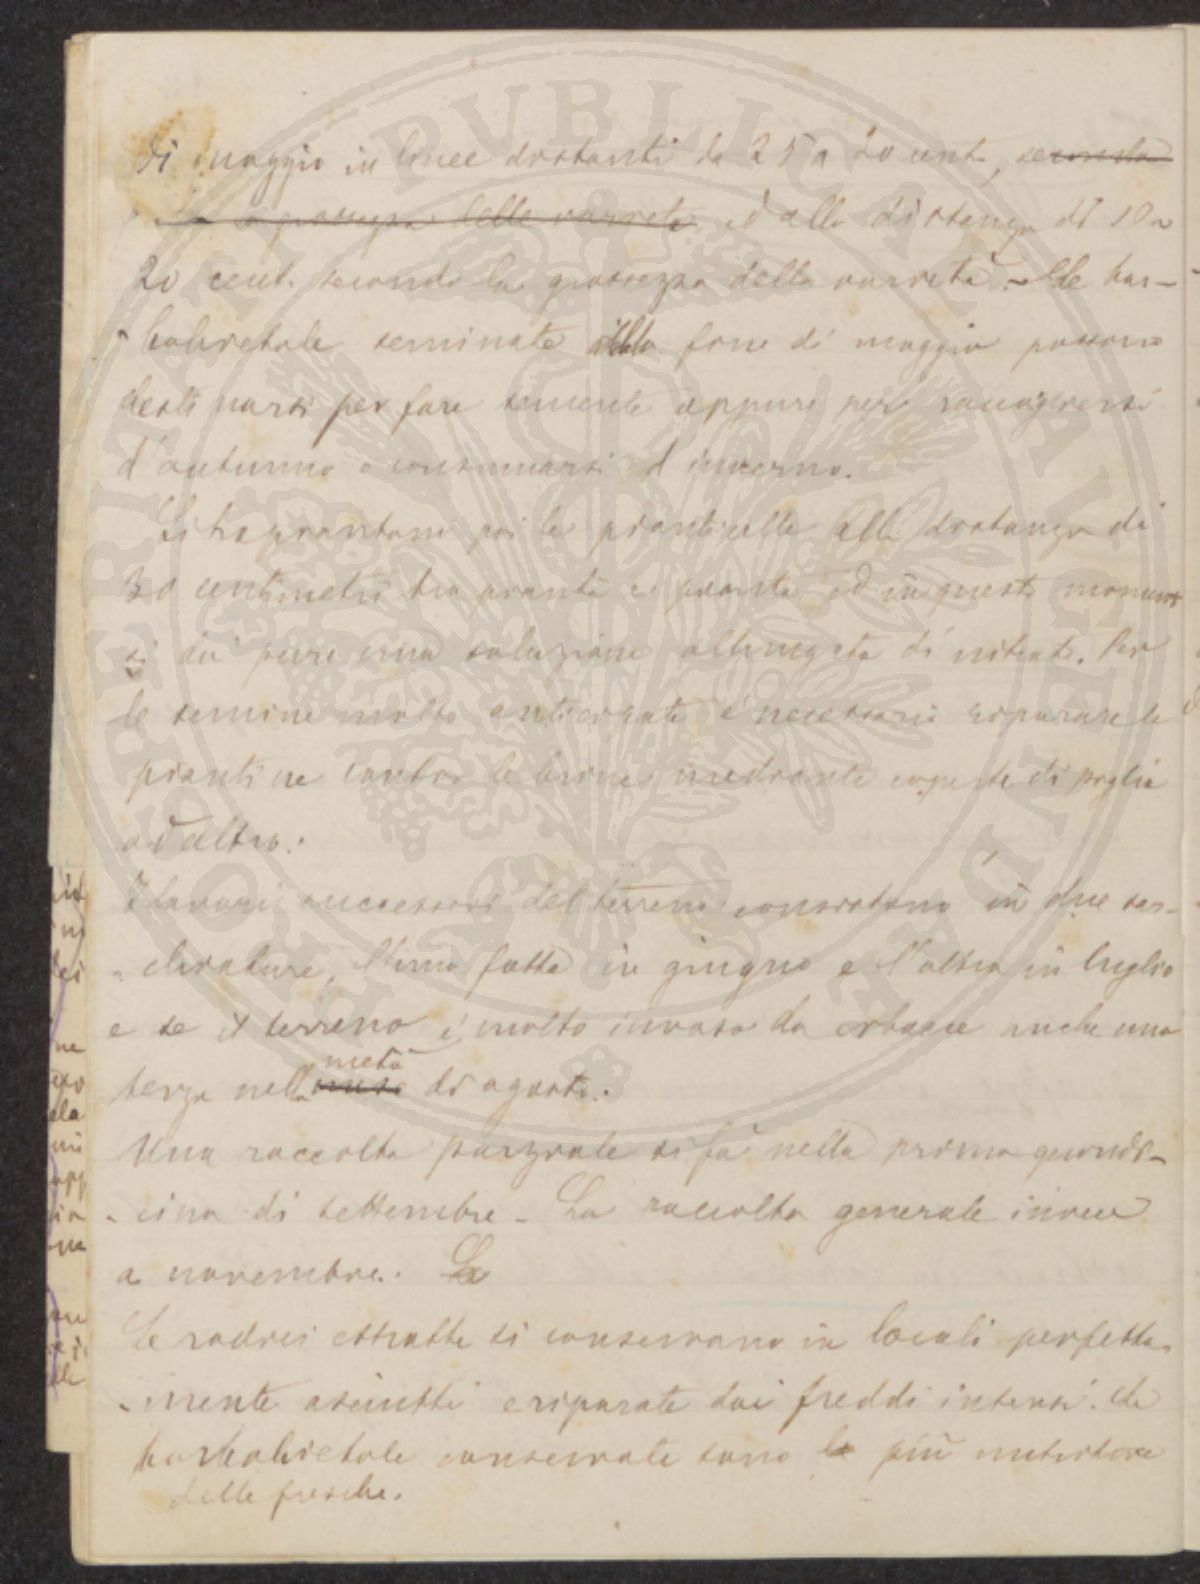 di maggio in linee distanti da 25 a 30 cent., secondo
la grossezza delle varietà ed alla distanza di 10 a
20 cent. secondo la grossezza della varietà. - Le bar-
babietole seminate alla fine di maggio possono
destinarsi per fare semente oppure per raccogliersi
d'autunno e consumarsi d'inverno.
Si trapiantano poi le pianticelle alla distanza di
30 centimetri tra pianta e pianta ed in questo momento
si dà pure una soluzione allungata di nitrato. Per
le semine molto anticipate è necessario riparare le
piantine contro le brine mediante coperte di paglia
od altro.
I lavori successivi del terreno consistono in due sar-
chiature, l'una fatta in giugno e l'altra in luglio
e se il terreno è molto invaso da erbacce anche una
metà
terza nella mese di agosto.
Una raccolta parziale si fa nella prima quindi-
cina di settembre - La raccolta generale invece
a novembre. La
Le radici estratte si conservano in locali perfetta-
mente asciutti e riparate dai freddi intensi. Le
barbabietole conservate sono le più nutritive
delle fresche.
ROBERITATI PUBLICAE